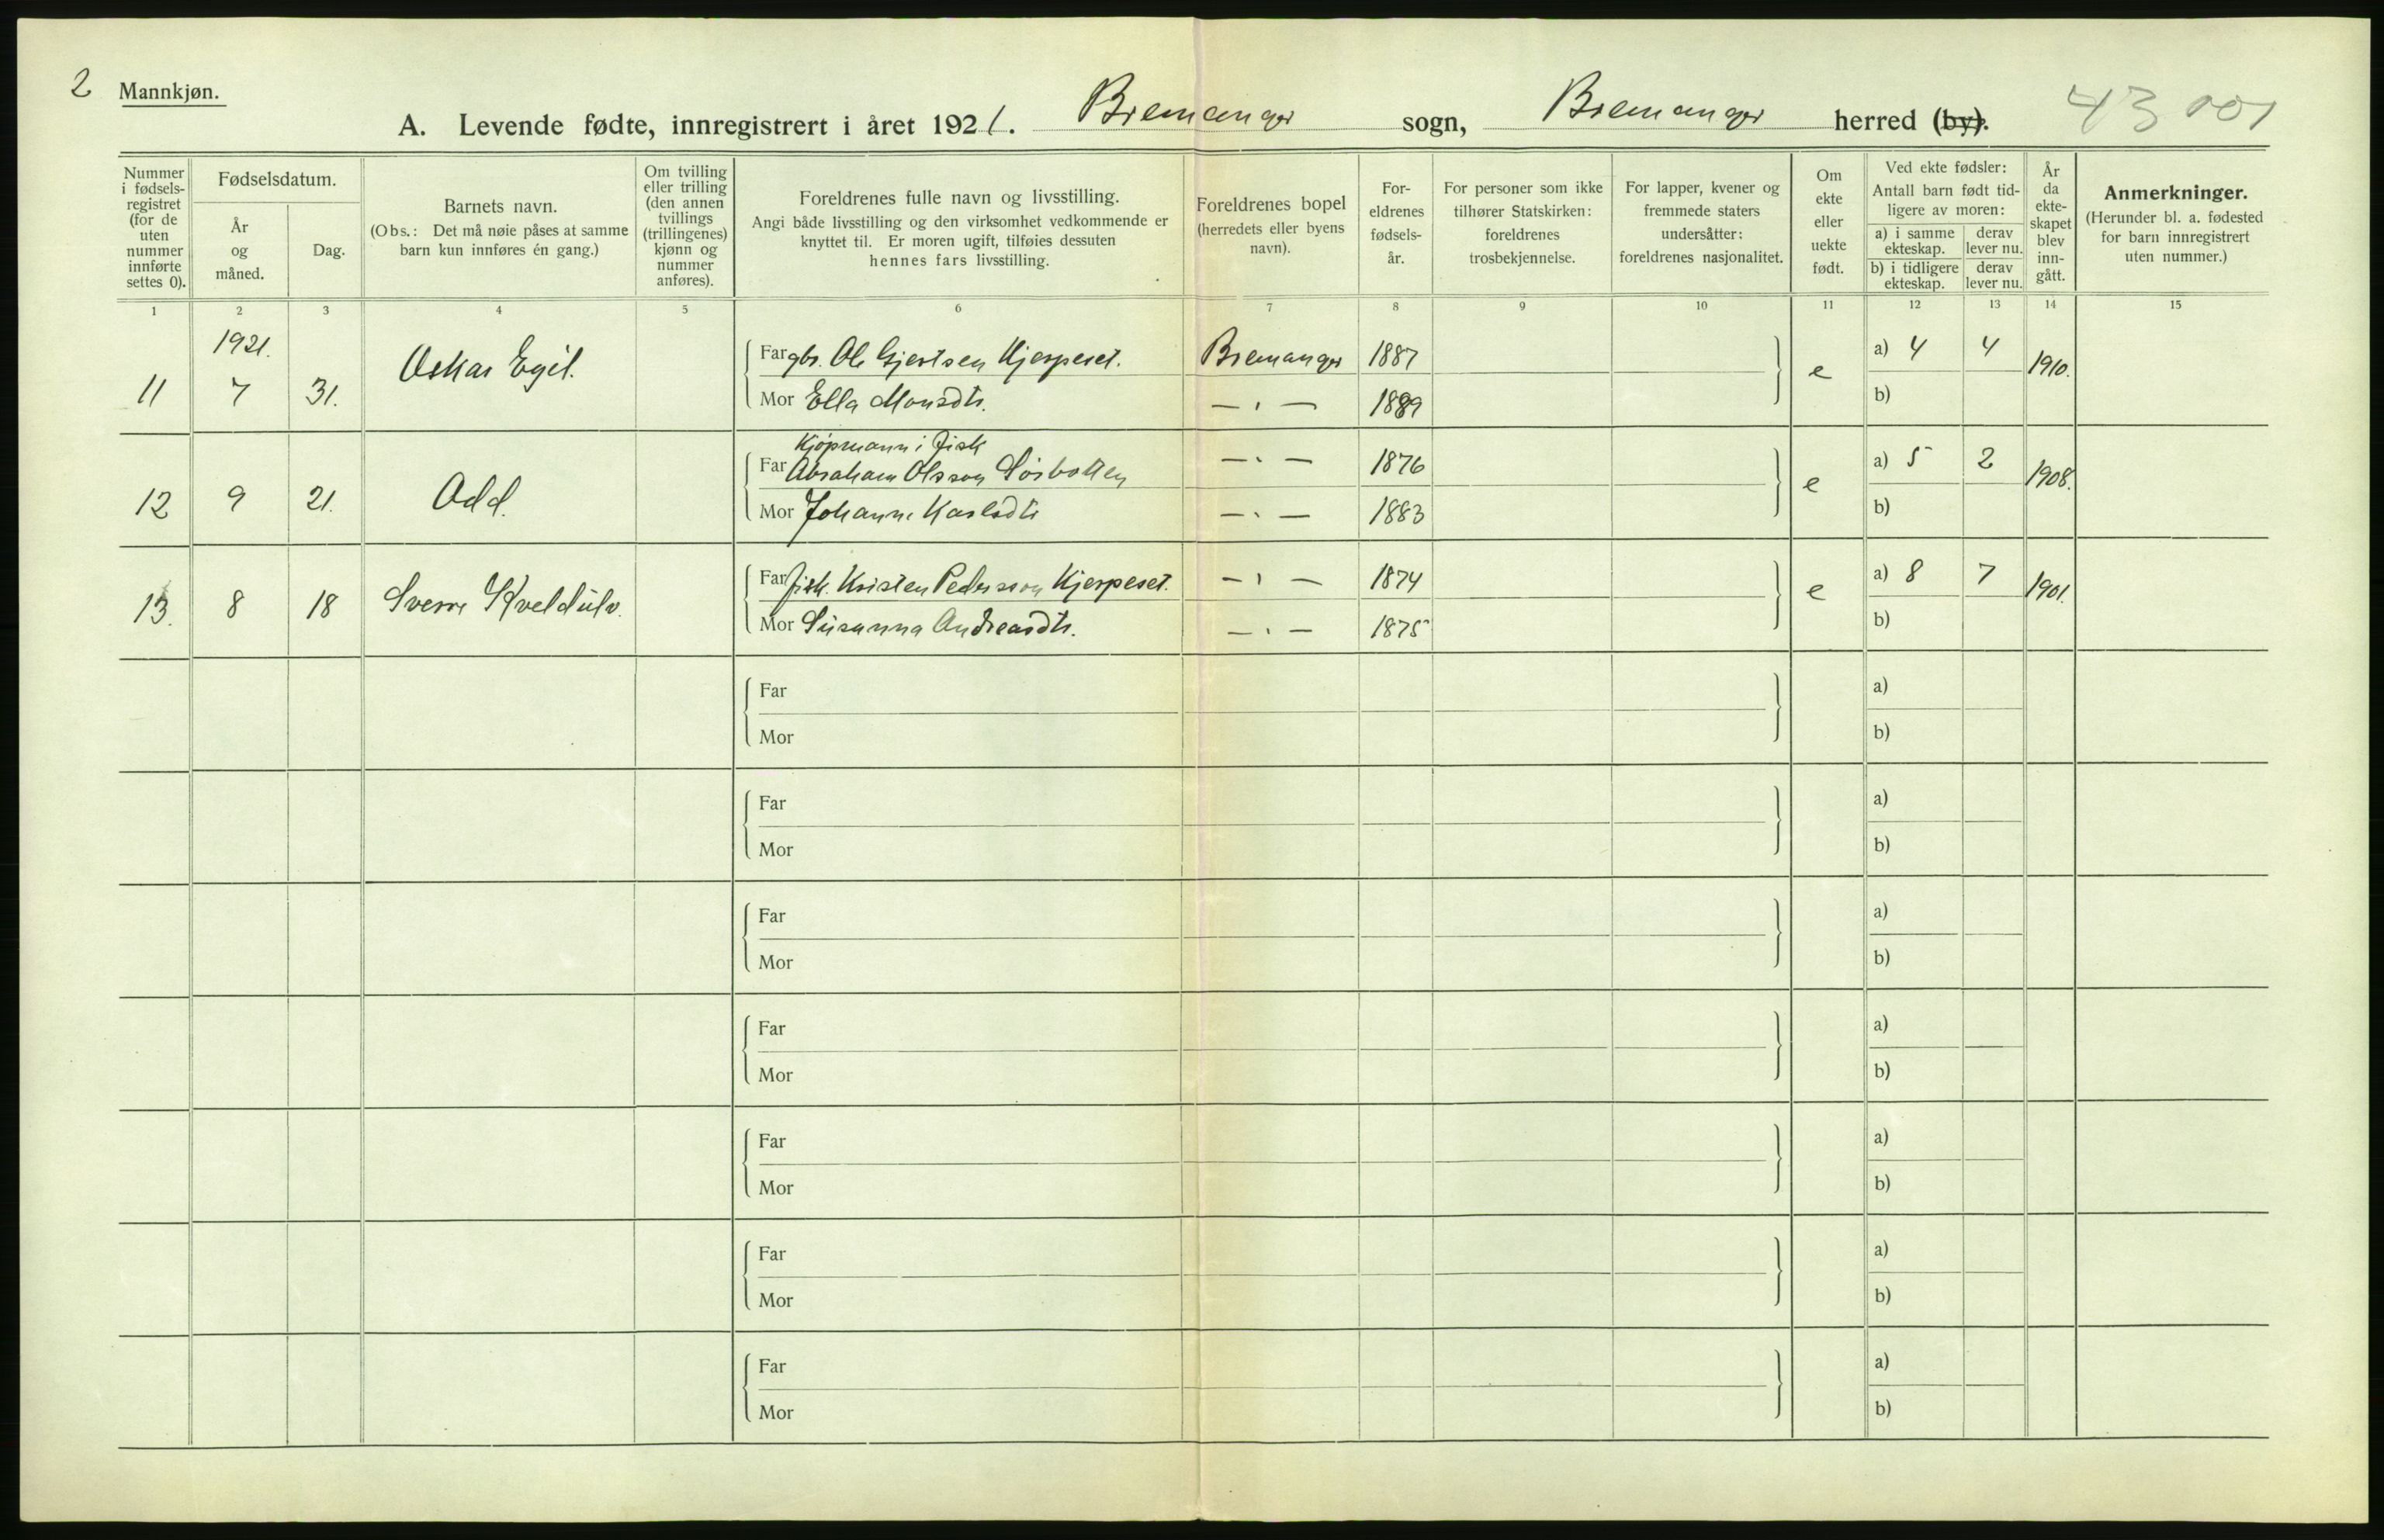 2 Mannkjøn.
A. Levende fødte, innregistrert i året 1921. Bremanger sogn, Bremanger herred (by). 43 001
Nummer i fødsels-registret (for de uten nummer innførte settes 0).
Fødselsdatum.
År og måned.
Dag.
Barnets navn.
(Obs.: Det må nøie påses at samme barn kun innføres én gang.)
Om tvilling eller trilling (den annen tvillings (trillingenes) kjønn og nummer anføres).
Foreldrenes fulle navn og livsstilling.
Angi både livsstilling og den virksomhet vedkommende er knyttet til. Er moren ugift, tilføies dessuten hennes fars livsstilling.
Foreldrenes bopel (herredets eller byens navn).
For-eldrenes fødsels-år.
For personer som ikke tilhører Statskirken: foreldrenes trosbekjennelse.
For lapper, kvener og fremmede staters undersåtter: foreldrenes nasjonalitet.
Om ekte eller uekte født.
Ved ekte fødsler: Antall barn født tid-ligere av moren:
a) i samme ekteskap. derav lever nu.
b) i tidligere ekteskap. derav lever nu.
År da ekte-skapet blev inn-gått.
Anmerkninger.
(Herunder bl. a. fødested for barn innregistrert uten nummer.)
1 2 3 4 5 6 7 8 9 10 11 12 13 14 15
1921.
11 7 31. Oskar Egil. Far gbr. Ole Gjertsen Kjerpeset. Bremanger 1887 e a) 4 4 1910.
Mor Ella Monsdtr. — " — 1889 b)
Kjøpmann i fisk
12 9 21. Odd. Far Abraham Olsson Sørbotten — " — 1876 e a) 5 2 1908.
Mor Johanne Karlsdtr — " — 1883 b)
13. 8 18 Sverre Kveldulv. Far fisk. Kristen Pedersson Kjerpeset. — " — 1874 e a) 8 7 1901.
Mor Susanna Andreasdtr. — " — 1875 b)
Far a)
Mor b)
Far a)
Mor b)
Far a)
Mor b)
Far a)
Mor b)
Far a)
Mor b)
Far a)
Mor b)
Far a)
Mor b)